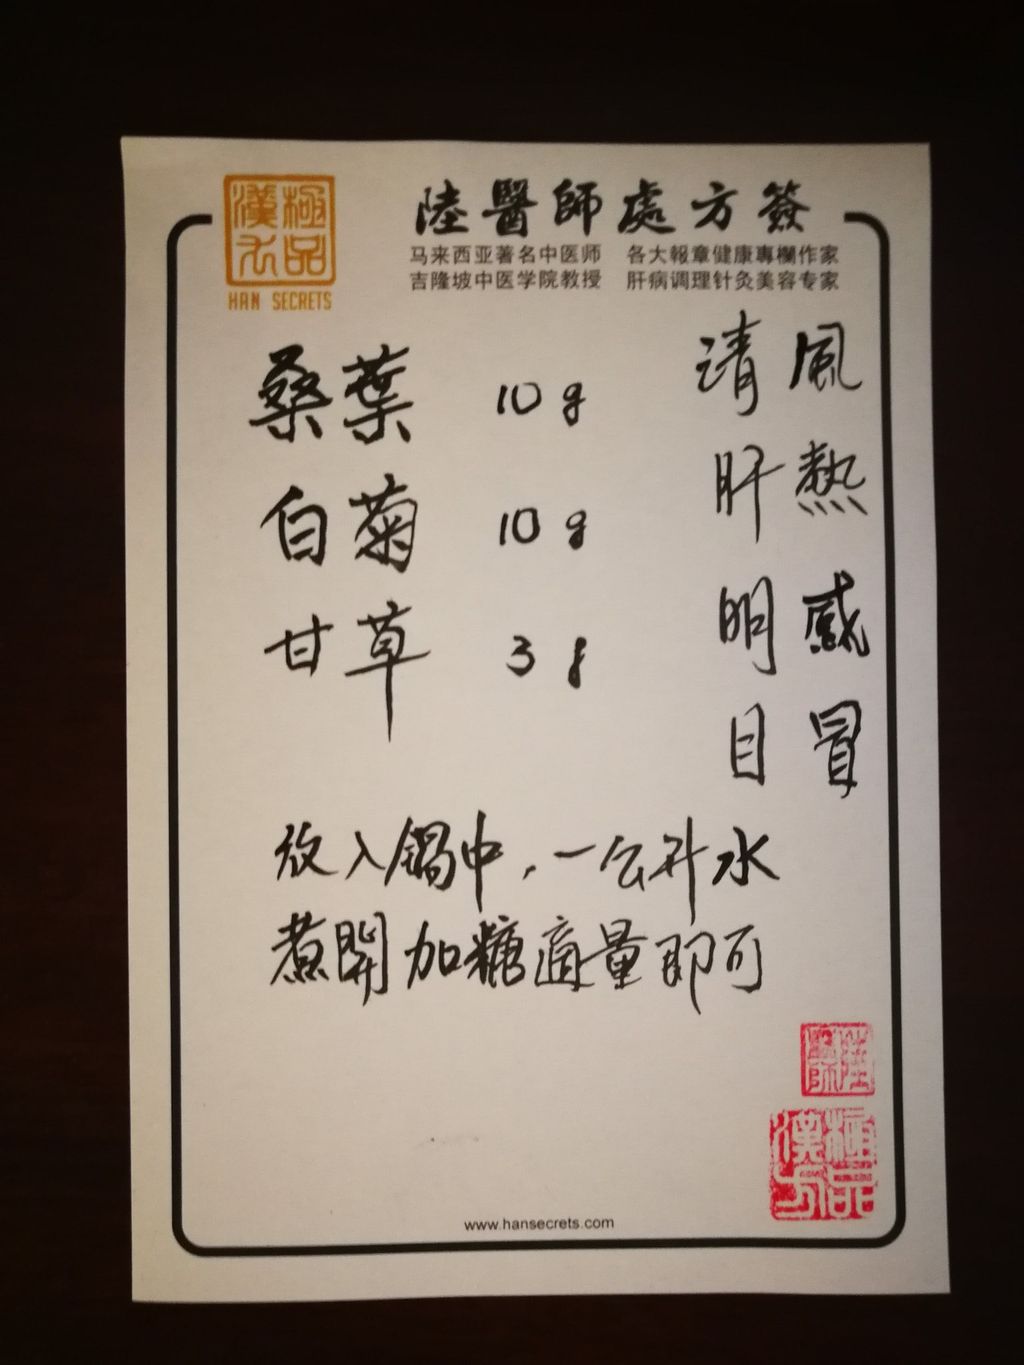 極品漢方
HAN SECRETS
陸醫師處方簽
马来西亚著名中医师 各大報章健康專欄作家
吉隆坡中医学院教授 肝病调理针灸美容专家
風熱感冒
清肝明目
桑葉 10g
白菊 10g
甘草 3g
放入鍋中，一公升水
煮開加糖適量即可
極品漢方
www.hansecrets.com